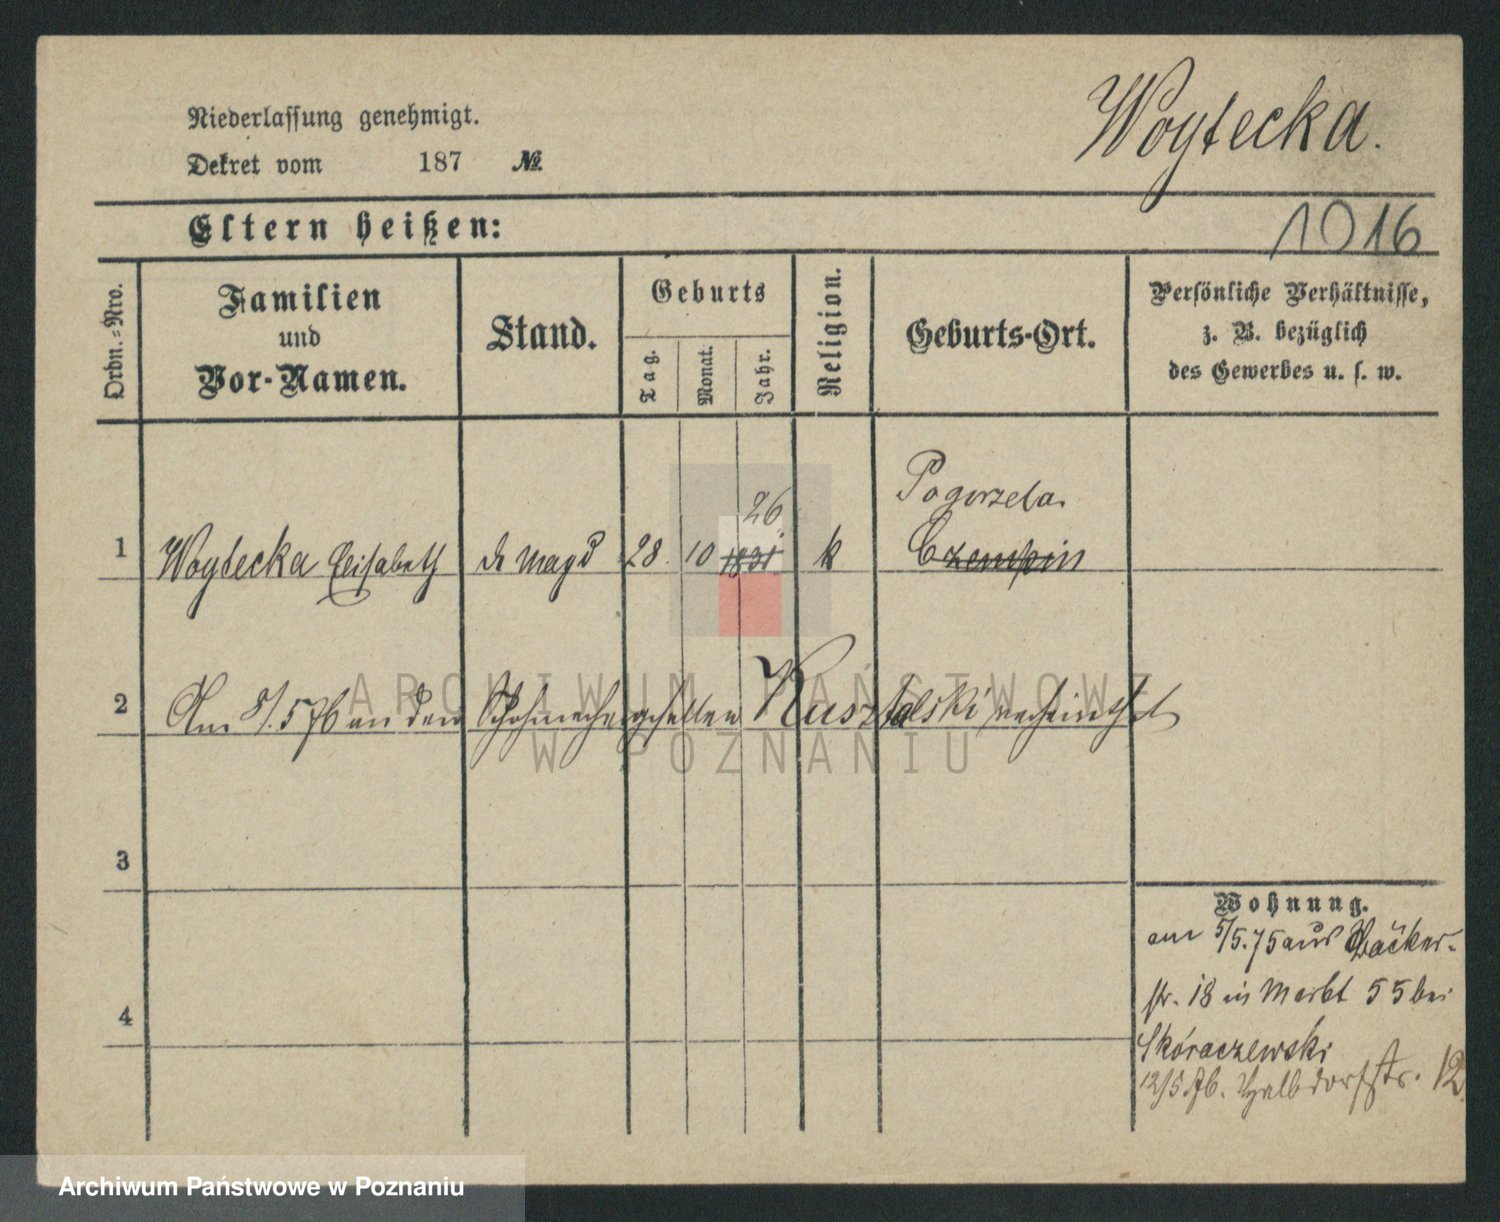 Niederlassung genehmigt.
Dekret vom 187 №
Woytecka.
Eltern heißen:
1016
Ordn.-Nro.
Familien
und
Vor-Namen.
Stand.
Geburts
Tag.
Monat.
Jahr.
Religion.
Geburts-Ort.
Persönliche Verhältnisse,
z. B. bezüglich
des Gewerbes u. s. w.
Pogorzela.
26
1 Woytecka Elisabeth Magd 28 10 1831 k Czempin
2 Am 8/5 76 an den Schuhmachergesellen verheirathet
ARCHIWUM PAŃSTWOWE
W POZNANIU
3
Wohnung.
am 5/5.75 aus Bäcker-
str. 18 in Markt 55 bei
4
Skóraczewski
12/5 76. Halbdorfstr. 12
Archiwum Państwowe w Poznaniu